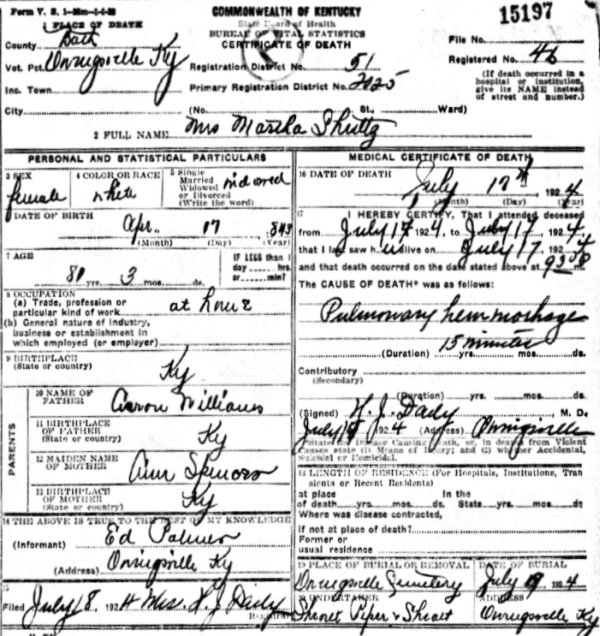 Form V. S. 1-20m-1-1-23
1 PLACE OF DEATH
COMMONWEALTH OF KENTUCKY
State Board of Health
BUREAU OF VITAL STATISTICS
CERTIFICATE OF DEATH
15197
County Bath
Vot. Pct. Owingsville Ky
Inc. Town
City
Registration District No. 51
Primary Registration District No. 2025
(No. St., Ward)
File No.
Registered No. 46
(If death occurred in a hospital or institution, give its NAME instead of street and number.)
2 FULL NAME Mrs Martha Shultz
PERSONAL AND STATISTICAL PARTICULARS
3 SEX female
4 COLOR OR RACE white
5 Single Married Widowed or Divorced (Write the word) widowed
6 DATE OF BIRTH
Apr. 17 1843
(Month) (Day) (Year)
7 AGE
81 yrs. 3 mos. ds.
IF LESS than 1 day hrs. or min.?
8 OCCUPATION
(a) Trade, profession or particular kind of work at home
(b) General nature of industry, business or establishment in which employed (or employer)
9 BIRTHPLACE
(State or country) Ky
PARENTS
10 NAME OF FATHER Aaron Williams
11 BIRTHPLACE OF FATHER (State or country) Ky
12 MAIDEN NAME OF MOTHER Ann
13 BIRTHPLACE OF MOTHER (State or country) Ky
14 THE ABOVE IS TRUE TO THE BEST OF MY KNOWLEDGE
(Informant) Ed Palmer
(Address) Owingsville Ky
15
Filed July 18, 1924 H. J. Daily
Registrar
MEDICAL CERTIFICATE OF DEATH
16 DATE OF DEATH
July 17th 1924
(Month) (Day) (Year)
17 I HEREBY CERTIFY, That I attended deceased
from July 17 1924, to July 17, 1924
that I last saw h alive on July 17, 1924
and that death occurred on the date stated above at 9
The CAUSE OF DEATH* was as follows:
Pulmonary hemmorhage
15 minutes
(Duration) yrs. mos. ds.
Contributory
(Secondary)
(Duration) yrs. mos. ds.
(Signed) H. J. Daily, M. D.
July 18, 1924 (Address) Owingsville
*State the Disease Causing Death, or, in deaths from Violent
Causes state (1) Means of Injury; and (2) whether Accidental,
Suicidal or Homicidal.
18 LENGTH OF RESIDENCE (For Hospitals, Institutions, Transients or Recent Residents)
at place of death yrs. mos. ds. In the State yrs. mos. ds.
Where was disease contracted,
if not at place of death?
Former or
usual residence
19 PLACE OF BURIAL OR REMOVAL
Owingsville Cemetery
DATE OF BURIAL
July 1924
20 UNDERTAKER
Shrout Piper & Shrout
ADDRESS
Owingsville Ky